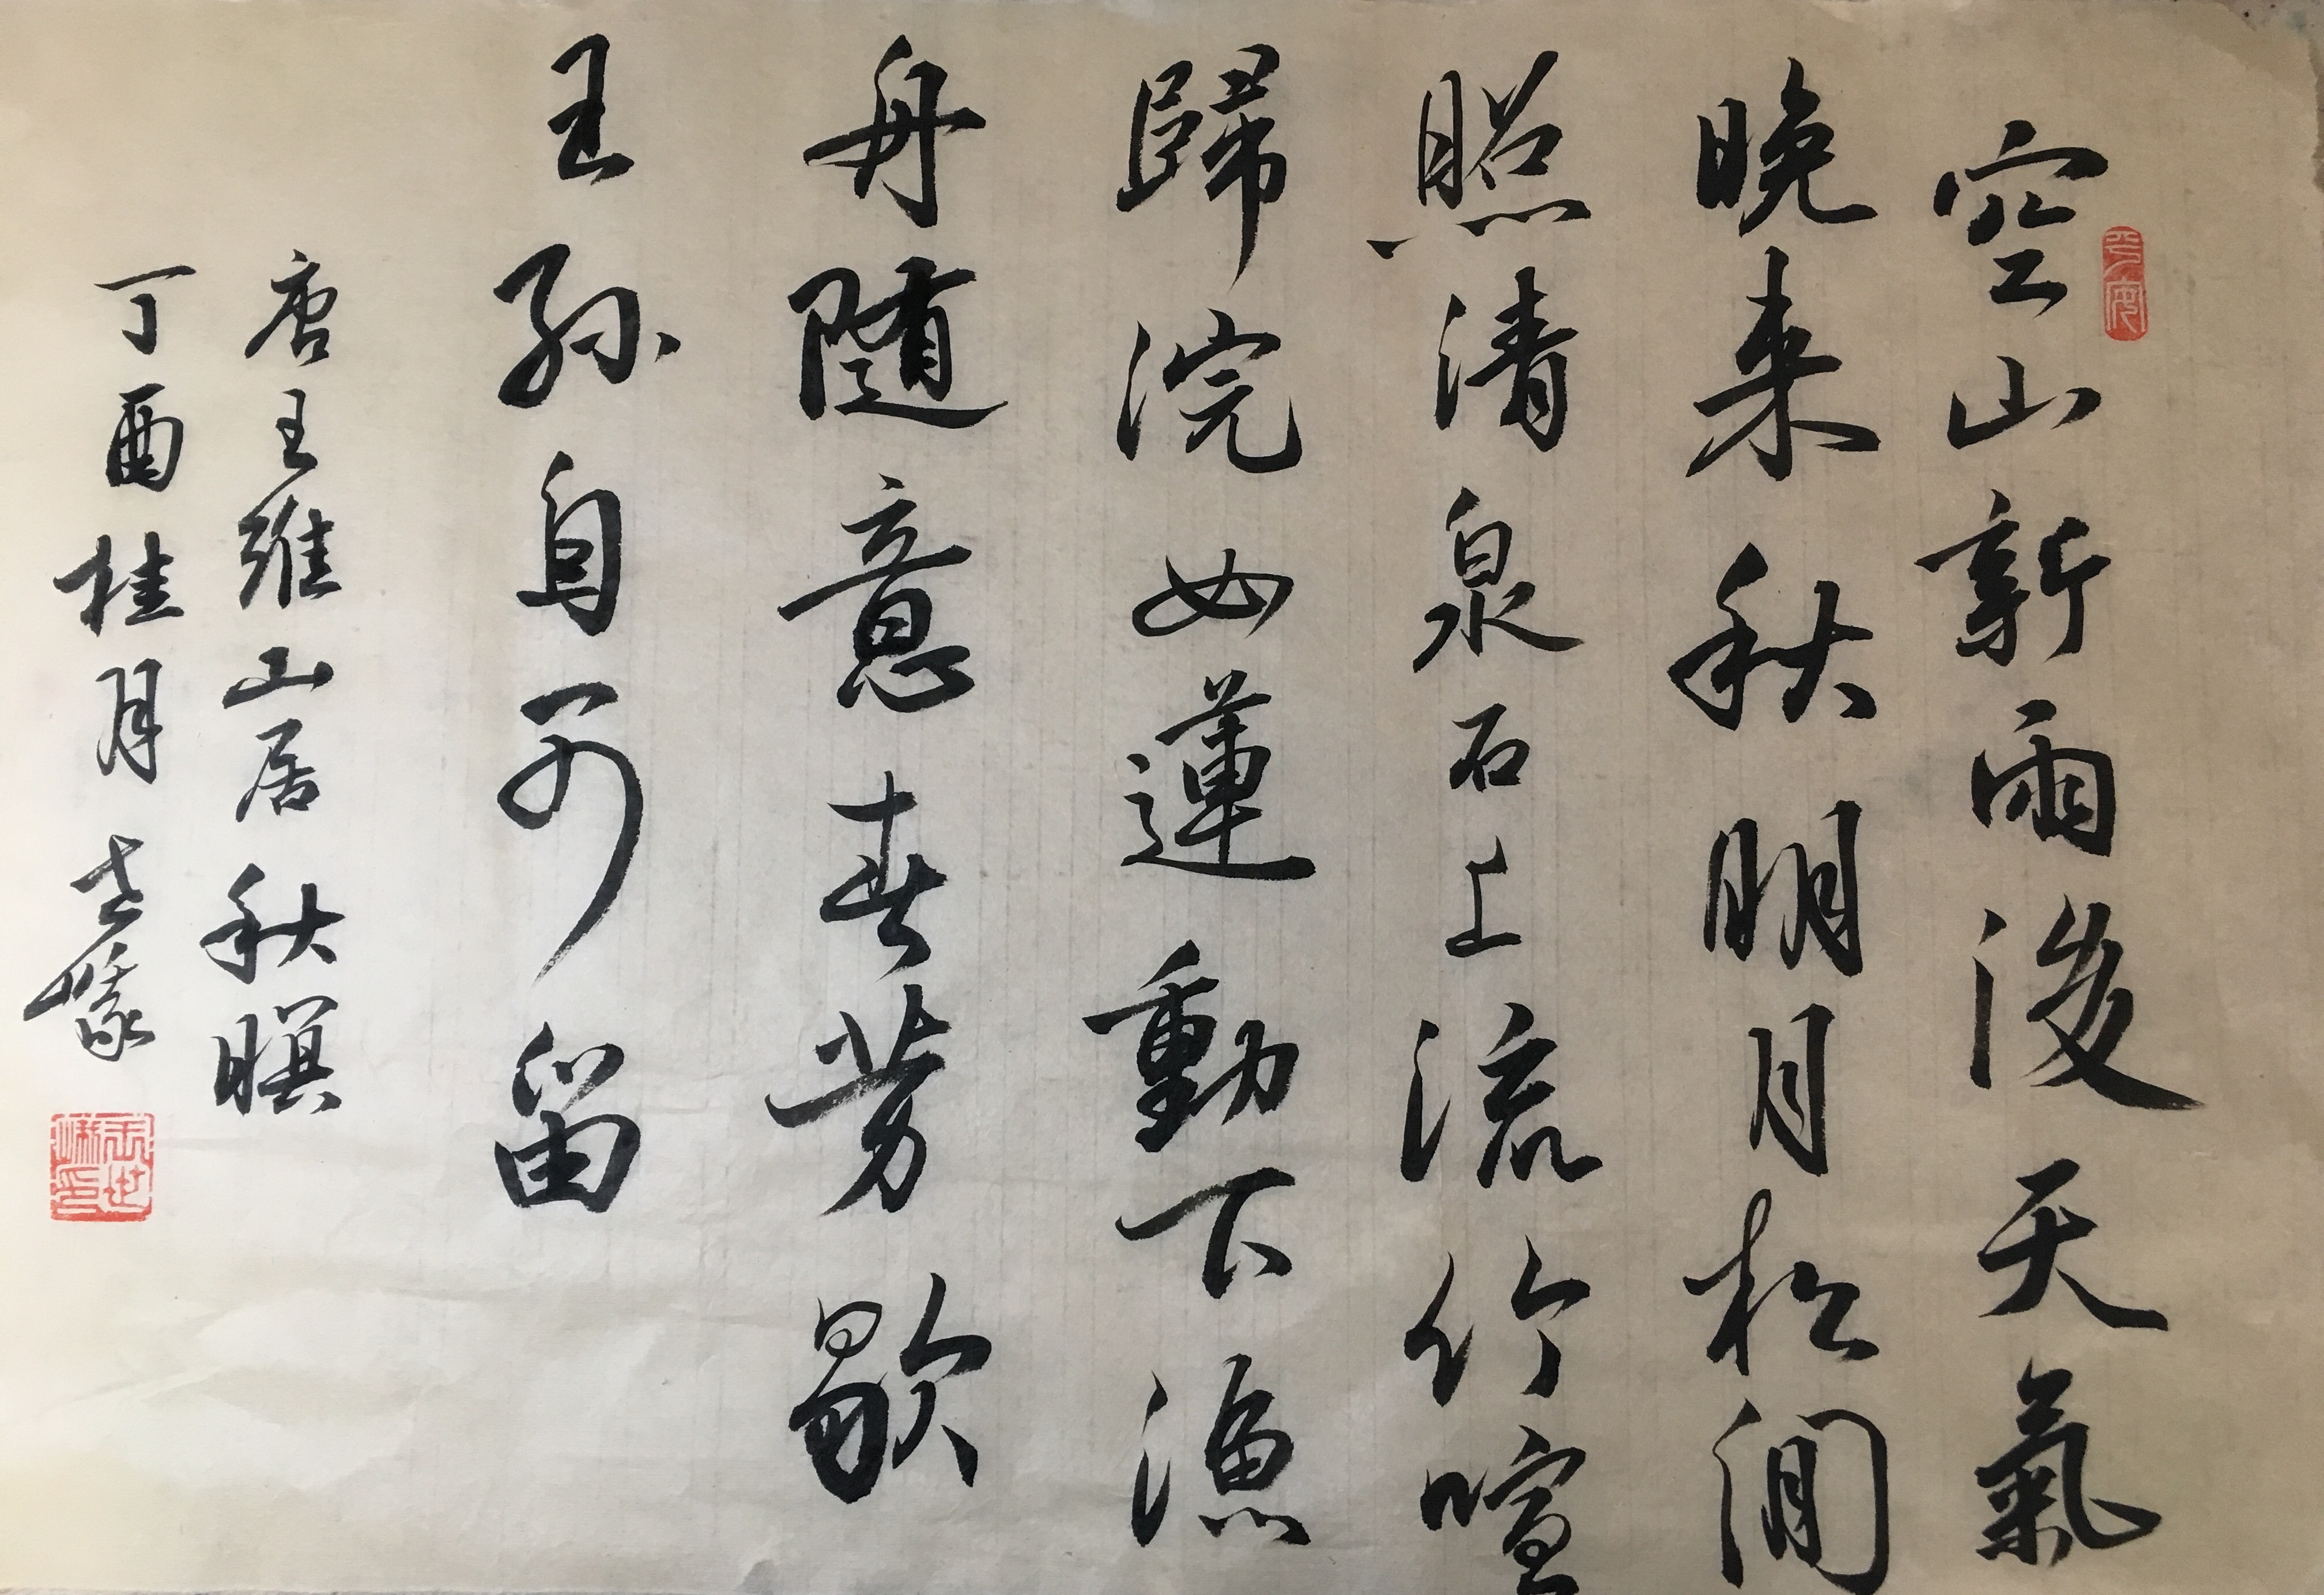 空山新雨後天氣
晚来秋明月松間
照清泉石上流竹喧
歸浣女蓮動下漁
舟随意春芳歇
王孫自可留
唐王維山居秋暝
丁酉桂月